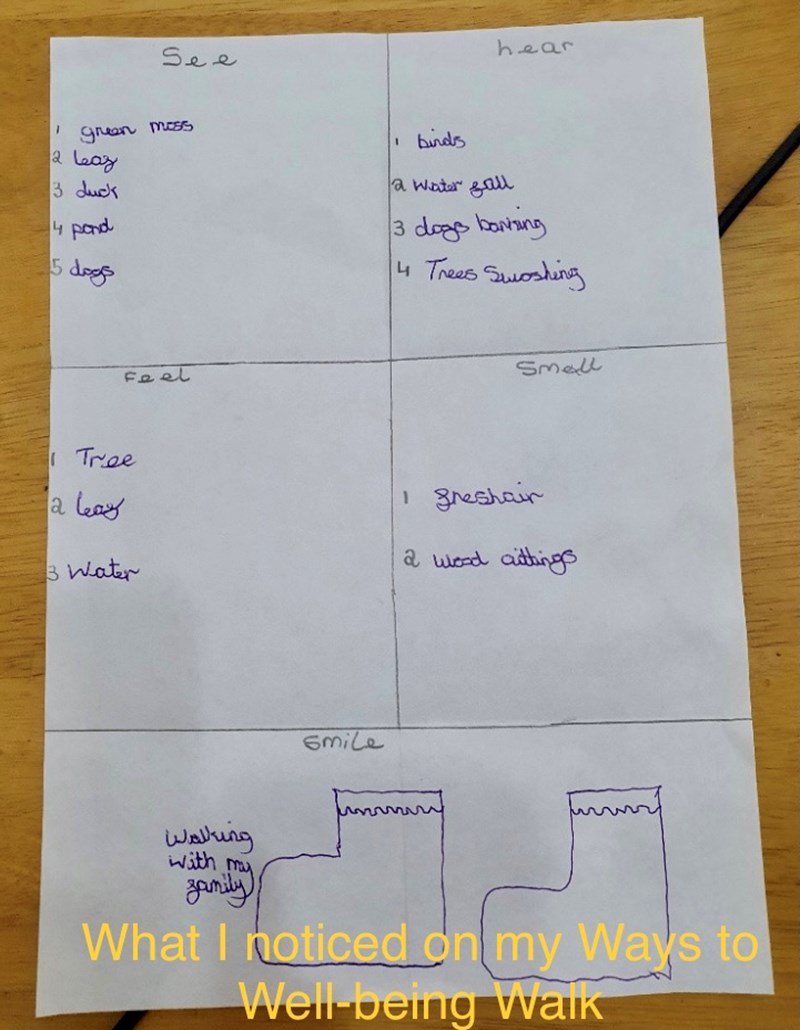 See
1 green moss
2 leaf
3 duck
4 pond
5 dogs
hear
1 birds
2 Water fall
3 dogs barking
4 Trees Swoshing
Feel
1 Tree
2 leaf
3 Water
Smell
1 freshair
2 Wood cuttings
Smile
Walking
with my
family
What I noticed on my Ways to
Well-being Walk